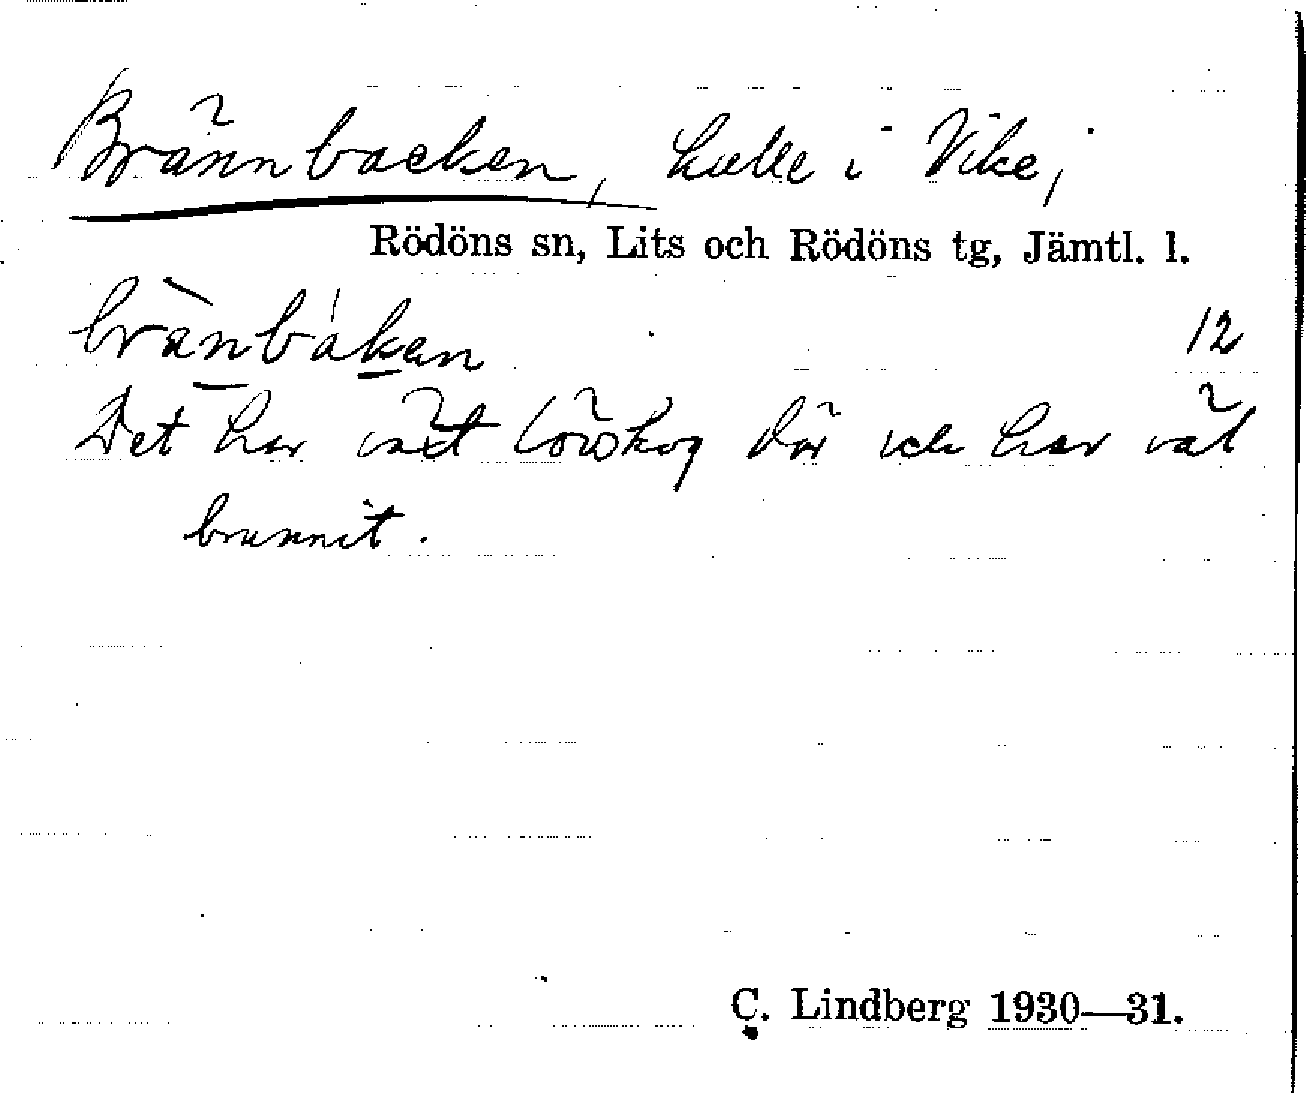 Brännbacken, kulle i Vike,
Rödöns sn, Lits och Rödöns tg, Jämtl. l.
brä̀nbákan 12
Det har vät lövskog där och har vät
brunnit.
C. Lindberg 1930—31.